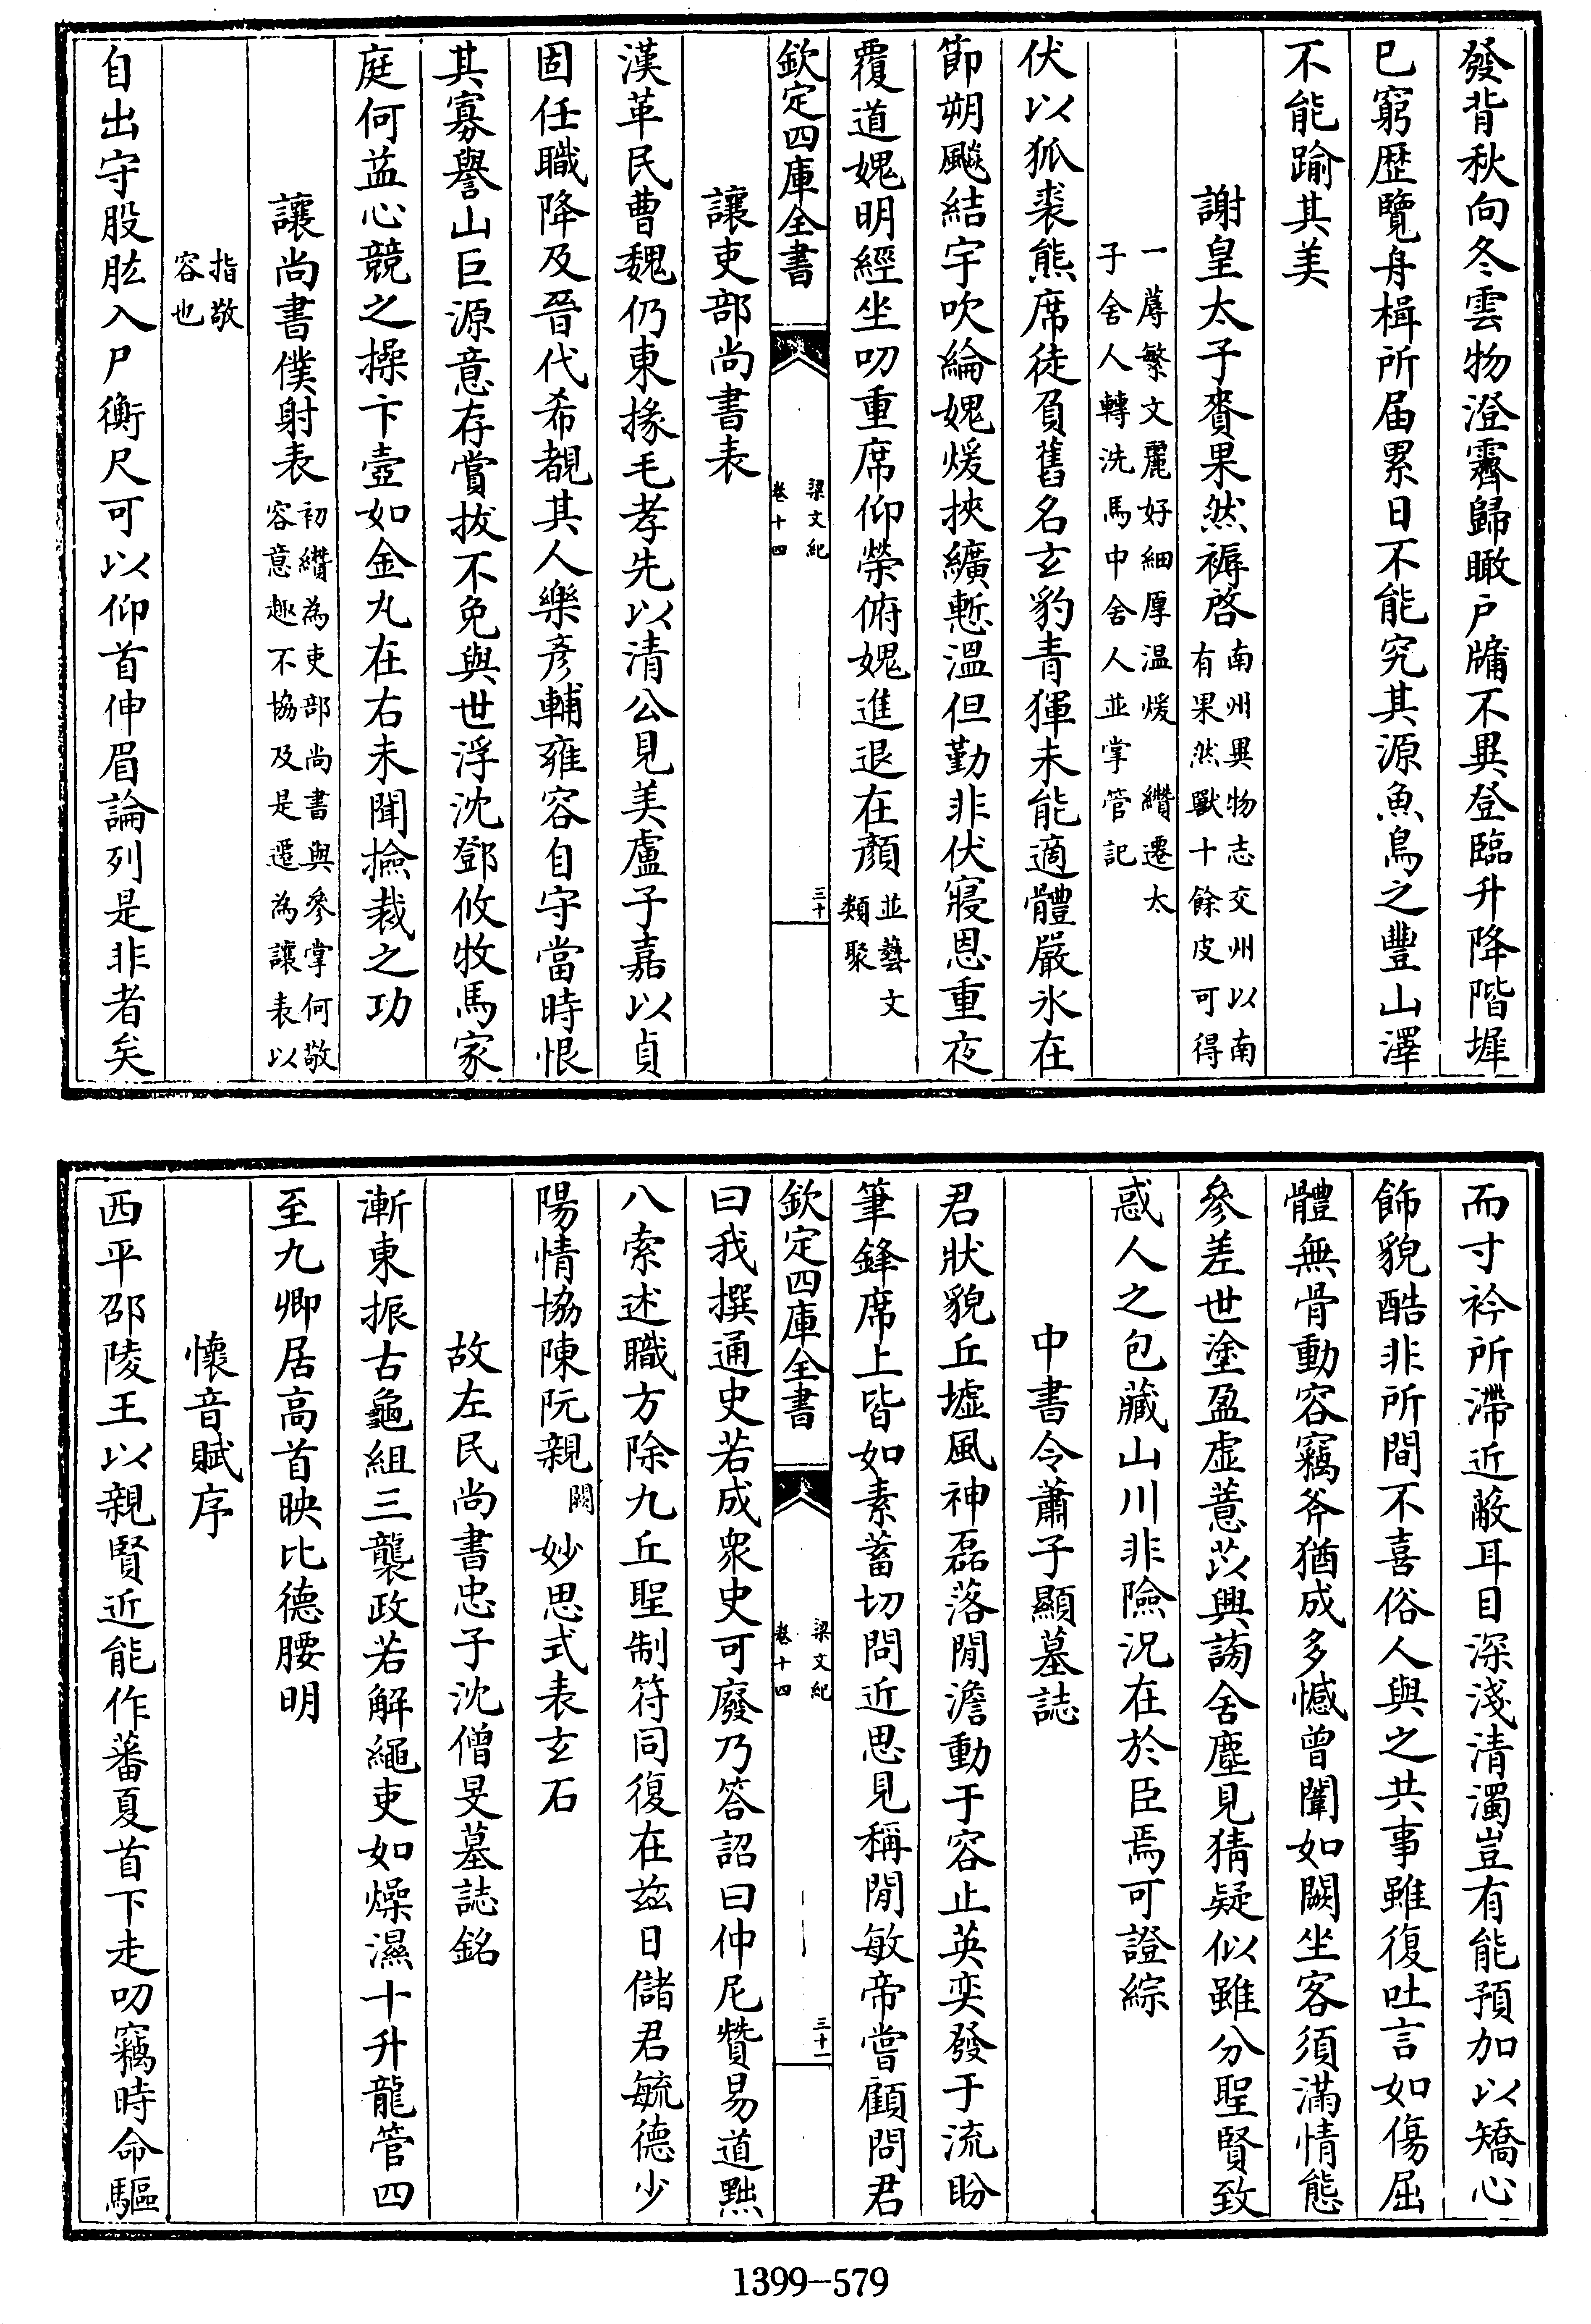 發背秋向冬雲物澄霽歸瞰户牖不異登臨升降階墀
已窮歴覽舟楫所届累日不能究其源魚鳥之豐山澤
不能踰其美
謝皇太子賚果然褥啓
南州異物志交州以南
有果然獸十餘皮可得
一蓐繁文麗好細厚温煖 纘遷太
子舍人轉洗馬中舍人並掌管記
伏以狐裘熊席徒負舊名玄豹青獋未能適體嚴氷在
節朔飈結宇吹綸媿煖挾纊慙溫但勤非伏寢恩重夜
覆道媿明經坐叨重席仰榮俯媿進退在顏
並藝文
類聚
欽定四庫全書
梁文紀
卷十四
三十
讓吏部尚書表
漢革民曹魏仍東掾毛孝先以清公見美盧子嘉以貞
固任職降及晉代希覩其人樂彦輔雍容自守當時恨
其寡譽山巨源意存賞拔不免與世浮沈鄧攸牧馬家
庭何益心競之操卞壼如金丸在右未聞撿裁之功
讓尚書僕射表
初纘為吏部尚書與參掌何敬
容意趣不協及是遷為讓表以
指敬
容也
自出守股肱入尸衡尺可以仰首伸眉論列是非者矣
而寸衿所滯近蔽耳目深淺清濁豈有能預加以矯心
飾貌酷非所間不喜俗人與之共事雖復吐言如傷屈
體無骨動容竊斧猶成多憾曾闈如闕坐客須滿情態
參差世塗盈虚薏苡興謗舍塵見猜疑似雖分聖賢致
惑人之包藏山川非險況在於臣焉可證綜
中書令蕭子顯墓誌
君狀貌丘墟風神磊落閒澹動于容止英奕發于流盼
筆鋒席上皆如素蓄切問近思見稱閒敏帝嘗顧問君
欽定四庫全書
梁文紀
卷十四
三十一
曰我撰通史若成衆史可廢乃答詔曰仲尼贊易道黜
八索述職方除九丘聖制符同復在兹日儲君毓德少
陽情協陳阮親闕妙思式表玄石
故左民尚書忠子沈僧旻墓誌銘
漸東振古龜組三襲政若解繩吏如燥濕十升龍管四
至九卿居高首映比德腰明
懷音賦序
西平邵陵王以親賢近能作蕃夏首下走叨竊時命驅
1399-579